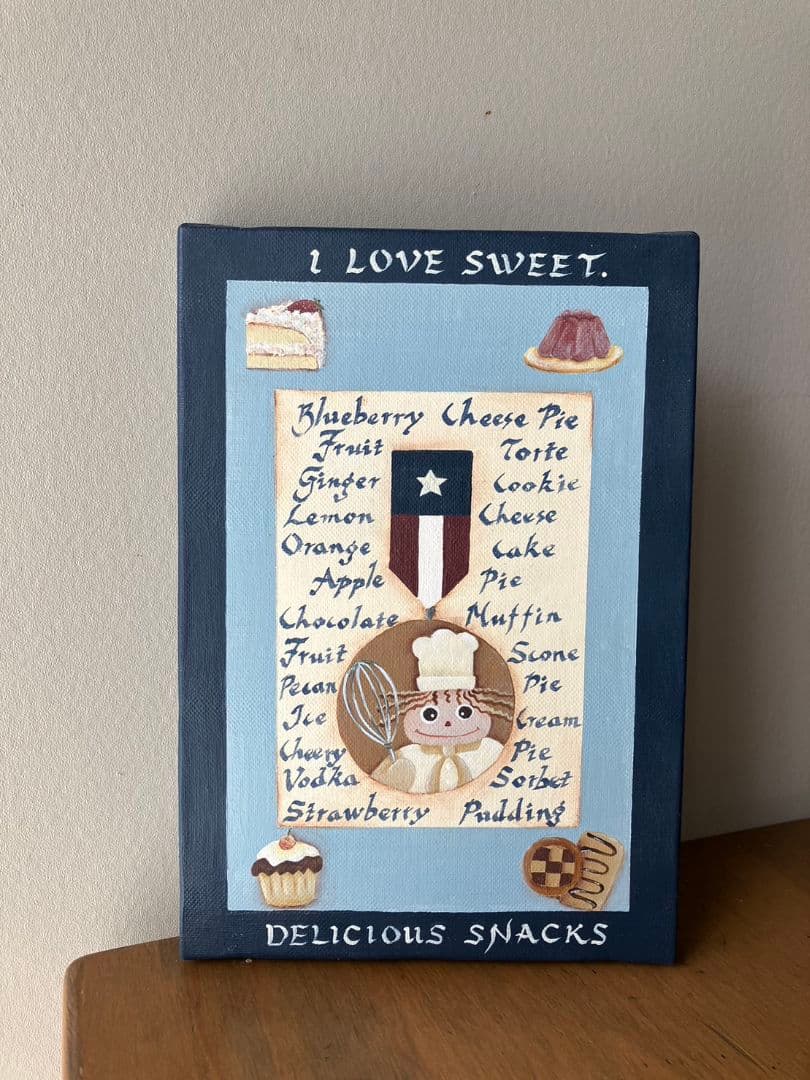 I LOVE SWEET.
Blueberry Cheese Pie
Fruit Torte
Ginger Cookie
Lemon Cheese
Orange Cake
Apple Pie
Chocolate Muffin
Fruit Scone
Pecan Pie
Ice Cream
Cheery Pie
Vodka Sorbet
Strawberry Pudding
DELICIOUS SNACKS